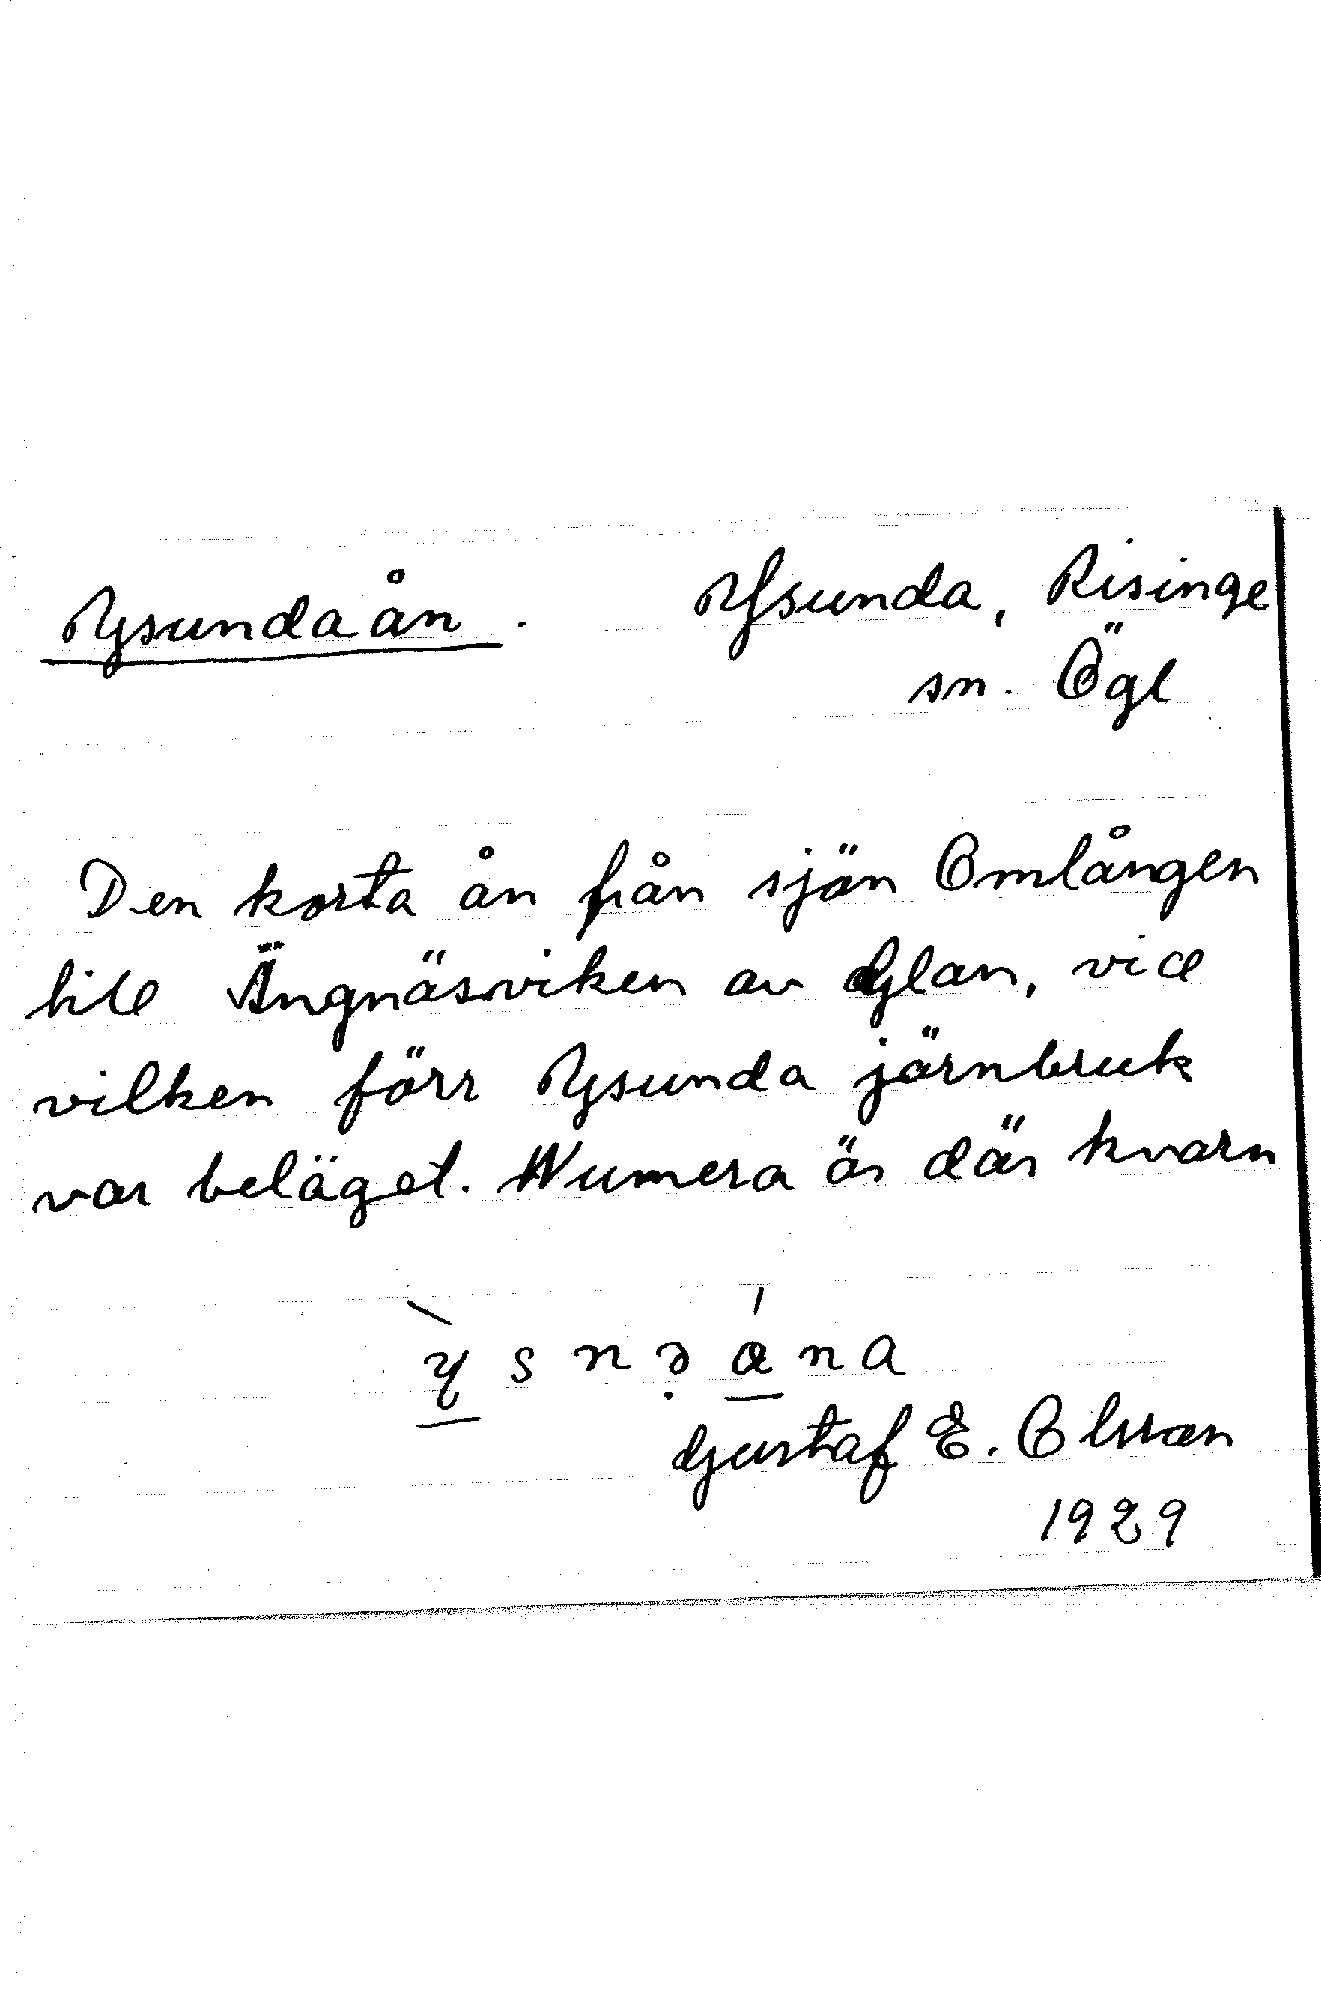 Ysundaån.
Ysunda, Risinge
sn. Ögl
Den korta ån från sjön Omlången
till Ängnäsviken av Glan, vid
vilken förr Ysunda järnbruk
var beläget. Numera är där kvarn
y s n ə a n a
Gustaf E. Olsson
1929